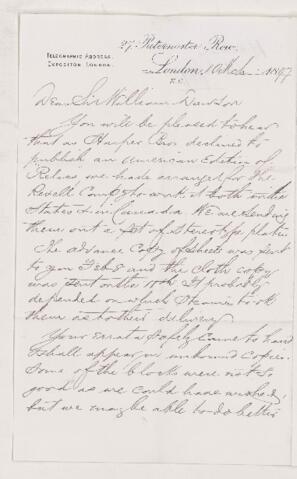 27, Paternoster Row,
TELEGRAPHIC ADDRESS,
EXPOSITOR LONDON.
London, 10 Mch 1897
E.C.
Dear Sir William Dawson
You will be pleased to hear
that as Harper Bros declined to
publish an American Edition of
Relics we made arranged for the
Revell Comp to work it both in the
States & in Canada We are sending
them out a set of Stereotype plates
The advance copy of sheets was sent
to you Feb 8 and the cloth copy
was sent on the 10th It probably
depended on which Steamer took
them as to their delivery
Your errata safely came to hand
& shall appear in unbound copies.
Some of the blocks were not so
good as we could have wished,
but we may be able to do better